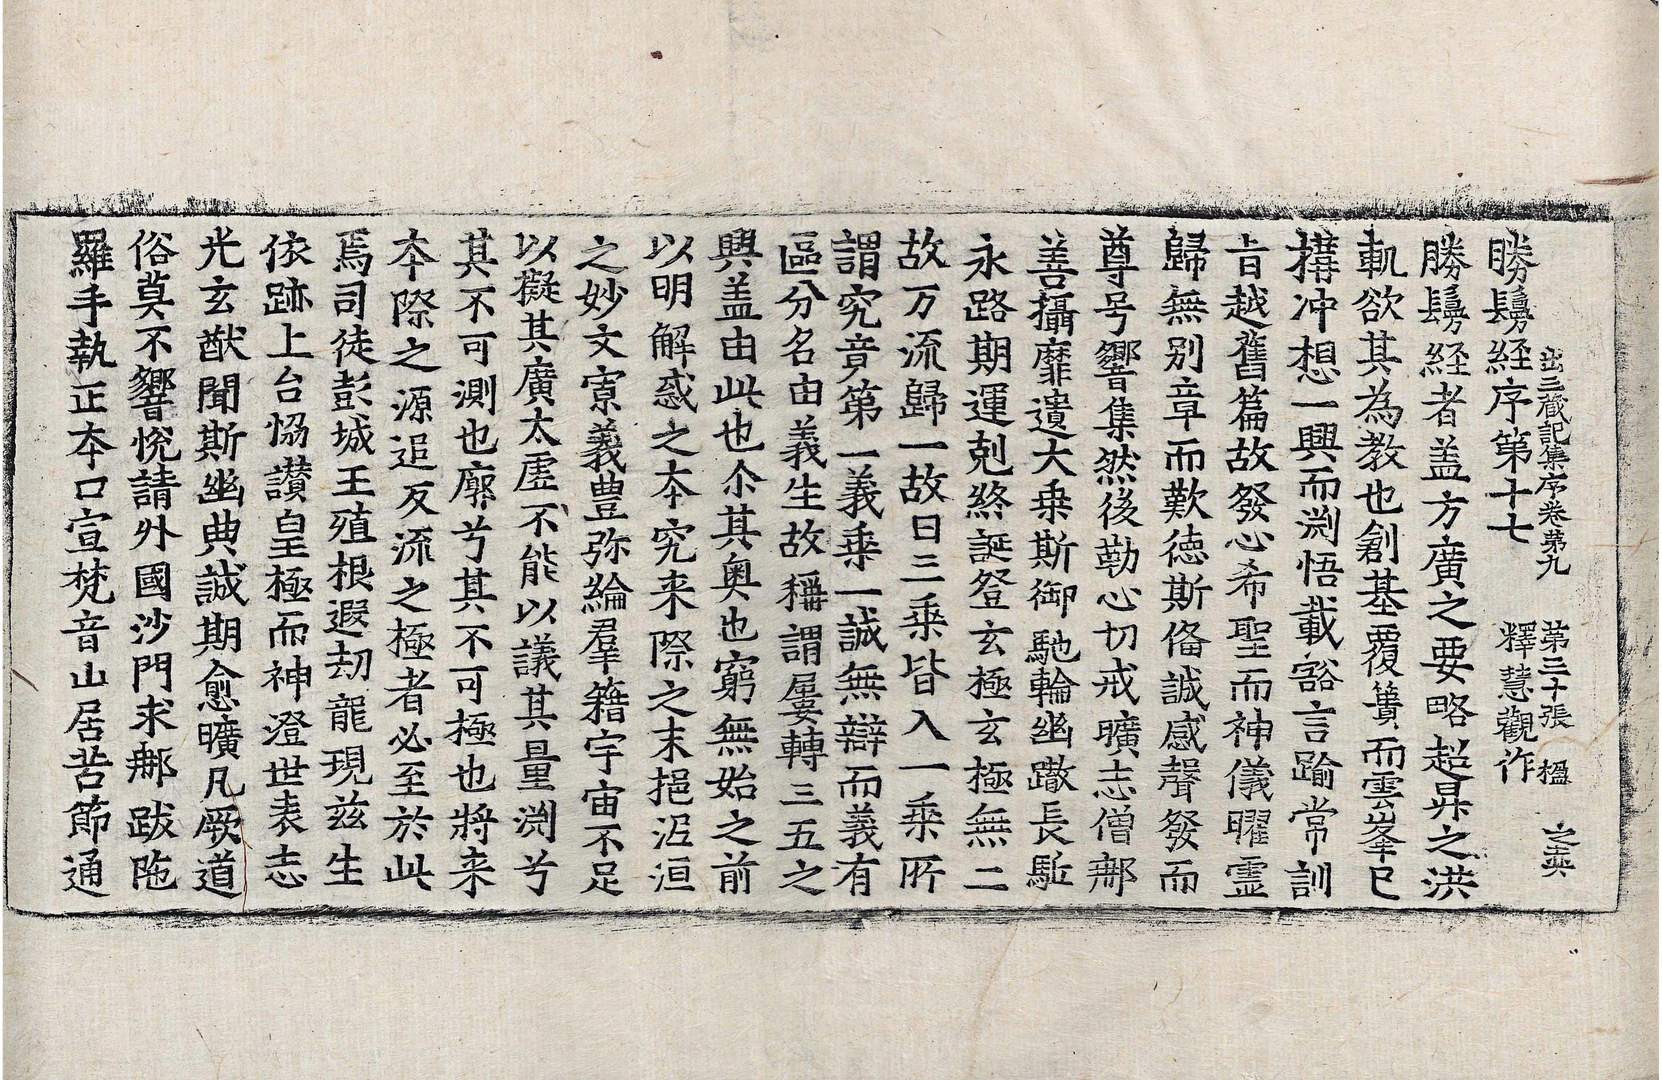 出三藏記集序卷第九 第三十張 楹 之英
勝鬘經序第十七 釋慧觀作
勝鬘經者盖方廣之要略超昇之洪
軌欲其為教也創基覆簣而雲峯已
搆冲想一興而渕悟載豁言踰常訓
旨越舊篇故發心希聖而神儀曜靈
歸無別章而歎德斯俻誠感聲發而
尊号響集然後勒心切戒曠志僧鄁
善攝靡遺大乗斯御馳輪幽蹾長駈
永路期運剋終誕登玄極玄極無二
故万流歸一故曰三乗皆入一乗所
謂究竟第一義乗一誠無辯而義有
區分名由義生故稱謂屢轉三五之
興盖由此也尒其奥也窮無始之前
以明解惑之夲究来際之末挹泥洹
之妙文寮義豊弥綸羣籍宇宙不足
以擬其廣太虛不能以議其量渕兮
其不可測也廓兮其不可極也將来
夲際之源追反流之極者必至於此
焉司徒彭城王殖根遐劫龍現兹生
依跡上台恊讃皇極而神澄世表志
光玄猷聞斯幽典誠期愈曠凡厥道
俗莫不響悅請外國沙門求郍跋陁
羅手執正夲口宣梵音山居苦節通